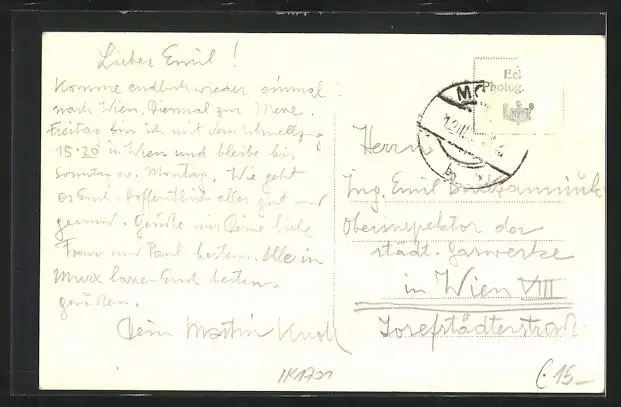 Lieber Emil!
Komme endlich wieder einmal
nach Wien. Diesmal zur Messe.
Freitag bin ich mit dem Schnellzug
15.20 in Wien und bleibe bis
Sonntag ev. Montag. Wie geht
es Euch. Hoffentlich alles gut und
gesund. Grüße mir Deine liebe
Frau und Paul bestens. Alle in
lassen Euch bestens
grüßen.
Dein Martin Knoll
Ech
Photog.
Herrn
Ing. Emil
Oberinspektor der
städt. Gaswerke
in Wien VIII
Josefstädterstraße
€ 15-